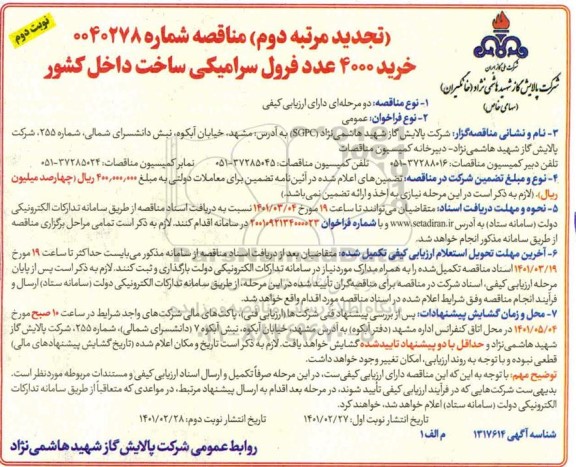 نوبت دوم
(تجدید مرتبه دوم) مناقصه شماره ۰۰۴۰۲۷۸
خرید ۴۰۰۰ عدد فرول سرامیکی ساخت داخل کشور
شرکت ملی گاز ایران
شرکت پالایش گاز شهید هاشمی نژاد (خانگیران)
(سهامی خاص)
۱- نوع مناقصه: دو مرحله‌ای دارای ارزیابی کیفی
۲- نوع فراخوان: عمومی
۳- نام و نشانی مناقصه‌گزار: شرکت پالایش گاز شهید هاشمی نژاد (SGPC) به آدرس: مشهد، خیابان آبکوه، نبش دانشسرای شمالی، شماره ۲۵۵، شرکت
پالایش گاز شهید هاشمی‌نژاد – دبیرخانه کمیسیون مناقصات
تلفن دبیر کمیسیون مناقصات: ۳۷۲۸۸۰۱۶-۰۵۱ تلفن کمیسیون مناقصات: ۳۷۲۸۵۰۴۵-۰۵۱ نمابر کمیسیون مناقصات: ۳۷۲۸۵۰۲۴-۰۵۱
۴- نوع و مبلغ تضمین شرکت در مناقصه: تضمین‌های اعلام شده در آئین‌نامه تضمین برای معاملات دولتی به مبلغ ۴۰۰,۰۰۰,۰۰۰ ریال (چهارصد میلیون
ریال). (لازم به ذکر است در این مرحله نیازی به اخذ و ارائه تضمین نمی‌باشد.)
۵- نحوه و مهلت دریافت اسناد: متقاضیان می‌توانند تا ساعت ۱۹ مورخ ۱۴۰۱/۰۳/۰۴ نسبت به دریافت اسناد مناقصه از طریق سامانه تدارکات الکترونیکی
دولت (سامانه ستاد) به آدرس www.setadiran.ir و با شماره فراخوان ۲۰۰۱۰۹۲۱۳۴۰۰۰۰۲۳ در سامانه اقدام کنند. لازم به ذکر است تمامی مراحل برگزاری مناقصه
از طریق سامانه مذکور انجام خواهد شد.
۶- آخرین مهلت تحویل استعلام ارزیابی کیفی تکمیل شده: متقاضیان بعد از دریافت اسناد مناقصه از سامانه مذکور می‌بایست حداکثر تا ساعت ۱۹ مورخ
۱۴۰۱/۰۳/۱۹ اسناد مناقصه تکمیل‌شده را به همراه مدارک موردنیاز در سامانه تدارکات الکترونیکی دولت بارگذاری و ثبت کنند. لازم به ذکر است پس از پایان
مرحله ارزیابی کیفی، اسناد شرکت در مناقصه برای مناقصه‌گران تأیید شده در این مرحله، از طریق سامانه تدارکات الکترونیکی دولت (سامانه ستاد) ارسال و
فرآیند انجام مناقصه وفق شرایط اعلام شده در اسناد مناقصه مورد اقدام واقع خواهد شد.
۷- محل و زمان گشایش پیشنهادات: پس از بررسی پیشنهاد فنی شرکت‌ها (ارزیابی فنی)، پاکت‌های مالی شرکت‌های واجد شرایط در ساعت ۱۰ صبح مورخ
۱۴۰۱/۰۵/۰۴ در محل اتاق کنفرانس اداره مشهد (دفتر آبکوه) به آدرس: مشهد، خیابان آبکوه، نبش آبکوه ۷ (دانشسرای شمالی)، شماره ۲۵۵، شرکت پالایش گاز
شهید هاشمی نژاد و حداقل با دو پیشنهاد تاییدشده گشایش خواهد یافت. لازم به ذکر است تاریخ و مکان اعلام شده (تاریخ گشایش پیشنهادهای مالی)
قطعی نبوده و با توجه به روند ارزیابی، امکان تغییر وجود خواهد داشت.
توضیح مهم: با توجه به این که این مناقصه دارای ارزیابی کیفی‌ست، در این مرحله صرفاً تکمیل و ارسال اسناد ارزیابی کیفی و مستندات مربوطه موردنظر است.
بدیهی ست شرکت‌هایی که در فرآیند ارزیابی کیفی تأیید شوند، در مرحله بعد اقدام به ارسال پیشنهاد مرتبط، در مواعدی که متعاقباً از طریق سامانه تدارکات
الکترونیکی دولت (سامانه ستاد) اعلام خواهد شد، خواهند کرد.
تاریخ انتشار نوبت اول: ۱۴۰۱/۰۲/۲۷ تاریخ انتشار نوبت دوم: ۱۴۰۱/۰۲/۲۸
شناسه آگهی ۱۳۱۷۶۱۴ م الف ۱
روابط عمومی شرکت پالایش گاز شهید هاشمی نژاد